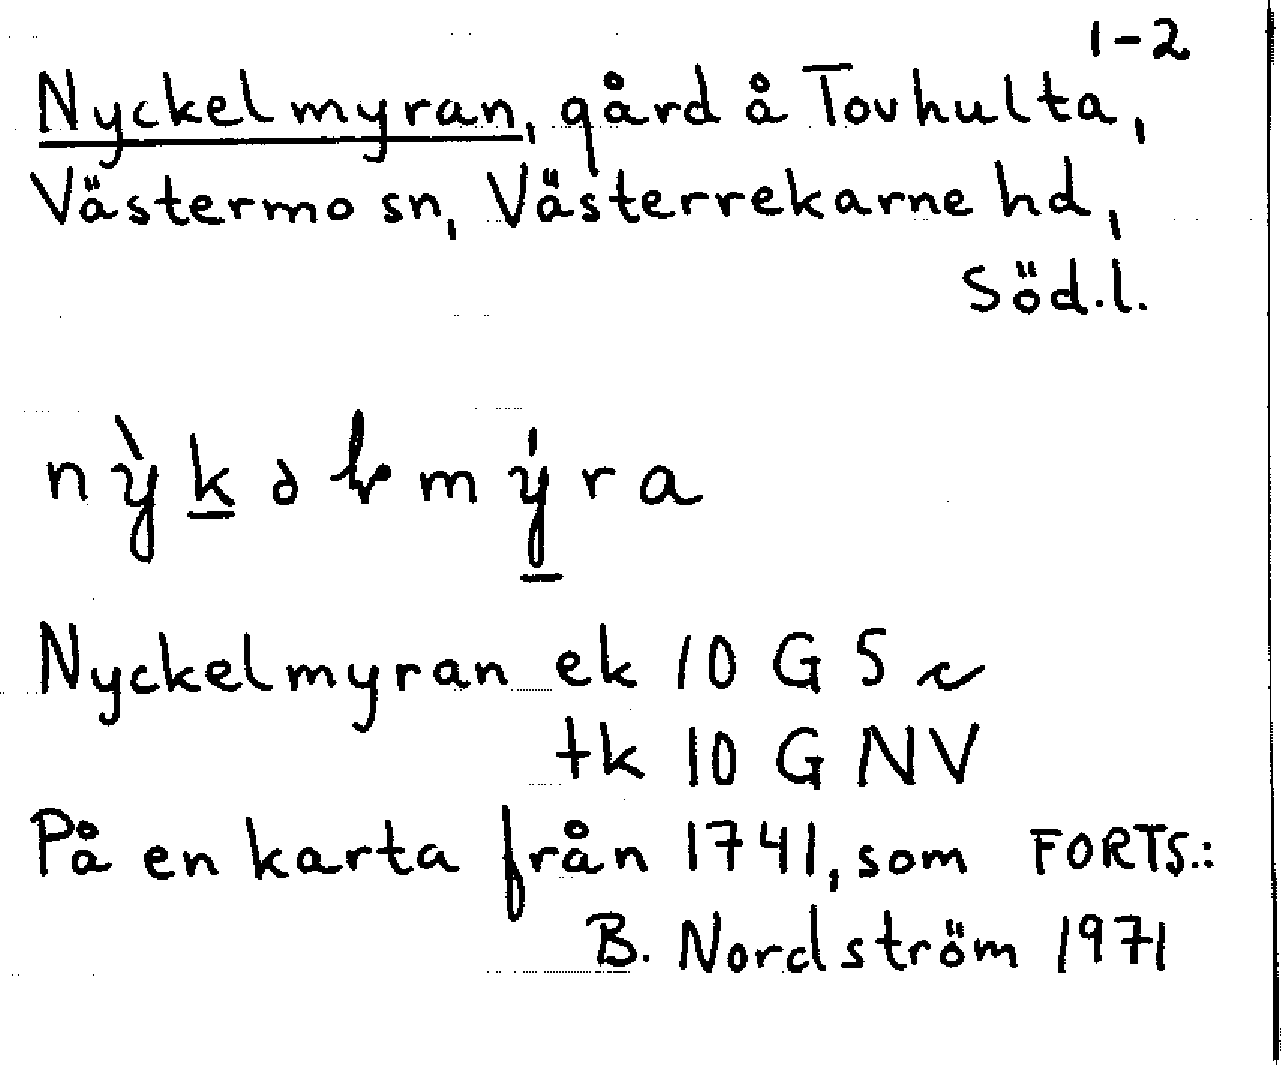 1-2
Nyckelmyran, gård å Tovhulta,
Västermo sn, Västerrekarne hd,
Söd.l.
Nyckelmyran ek 10 G 5 c
tk 10 G NV
På en karta från 1741, som FORTS.:
B. Nordström 1971